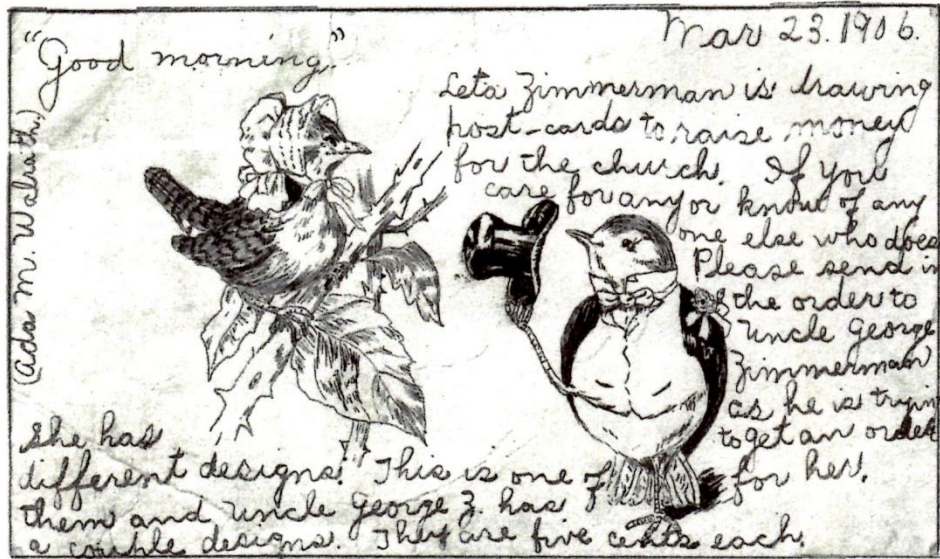 Mar 23. 1906.
"Good morning."
(Ada M. Walrath)
Leta Zimmerman is drawing
post-cards to raise money
for the church. If you
care for any or know of any
one else who does
Please send in
the order to
Uncle George
Zimmerman
as he is tryin
to get an order
for her.
She has
different designs. This is one of
them and Uncle George Z. has
a couple designs. They are five cents each.